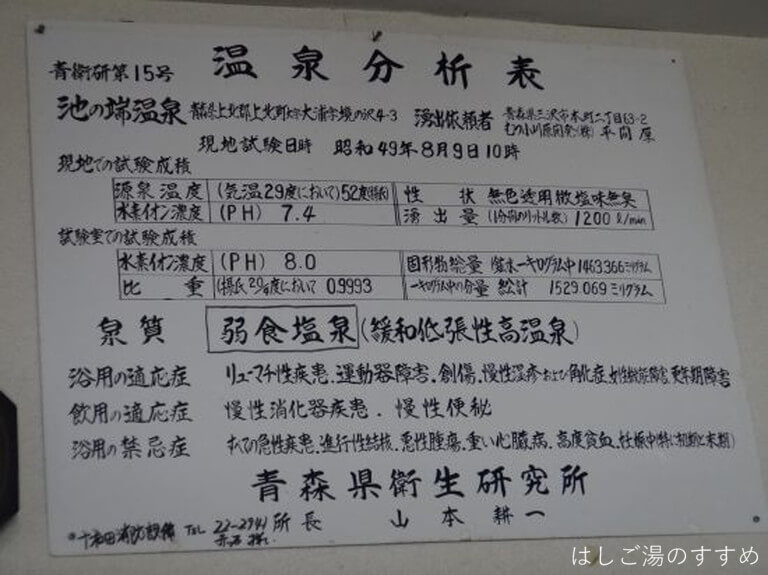 青衛研第15号 温泉分析表
池の端温泉 青森県上北郡上北町大字大浦字境の沢4-3 湧出依頼者 青森県三沢市本町二丁目63-2
むつ小川原開発(株) 平間原
現地試験日時 昭和49年8月9日10時
現地での試験成積
源泉温度 (気温29度において)52度(摂氏) 性状 無色透用微塩味無臭
水素イオン濃度 (PH) 7.4 湧出量 (1分間のリットル数) 1200 l/min
試験室での試験成積
水素イオン濃度 (PH) 8.0 固形物総量 源水一キログラム中1463.366ミリグラム
比重 (摂氏20/4度において 0.9993 一キログラム中の分量 総計 1529.069ミリグラム
泉質 弱食塩泉(緩和低張性高温泉)
浴用の適応症 リューマチ性疾患.運動器障害.創傷.慢性湿疹および角化症.女性機能障害.更年期障害
飲用の適応症 慢性消化器疾患.慢性便秘
浴用の禁忌症 すべての急性疾患.進行性結核.悪性腫瘍.重い心臓病.高度貧血.妊娠中(特に初期と末期)
青森県衛生研究所
所長 山本耕一
十和田消防設備 TEL 22-2941
はしご湯のすすめ